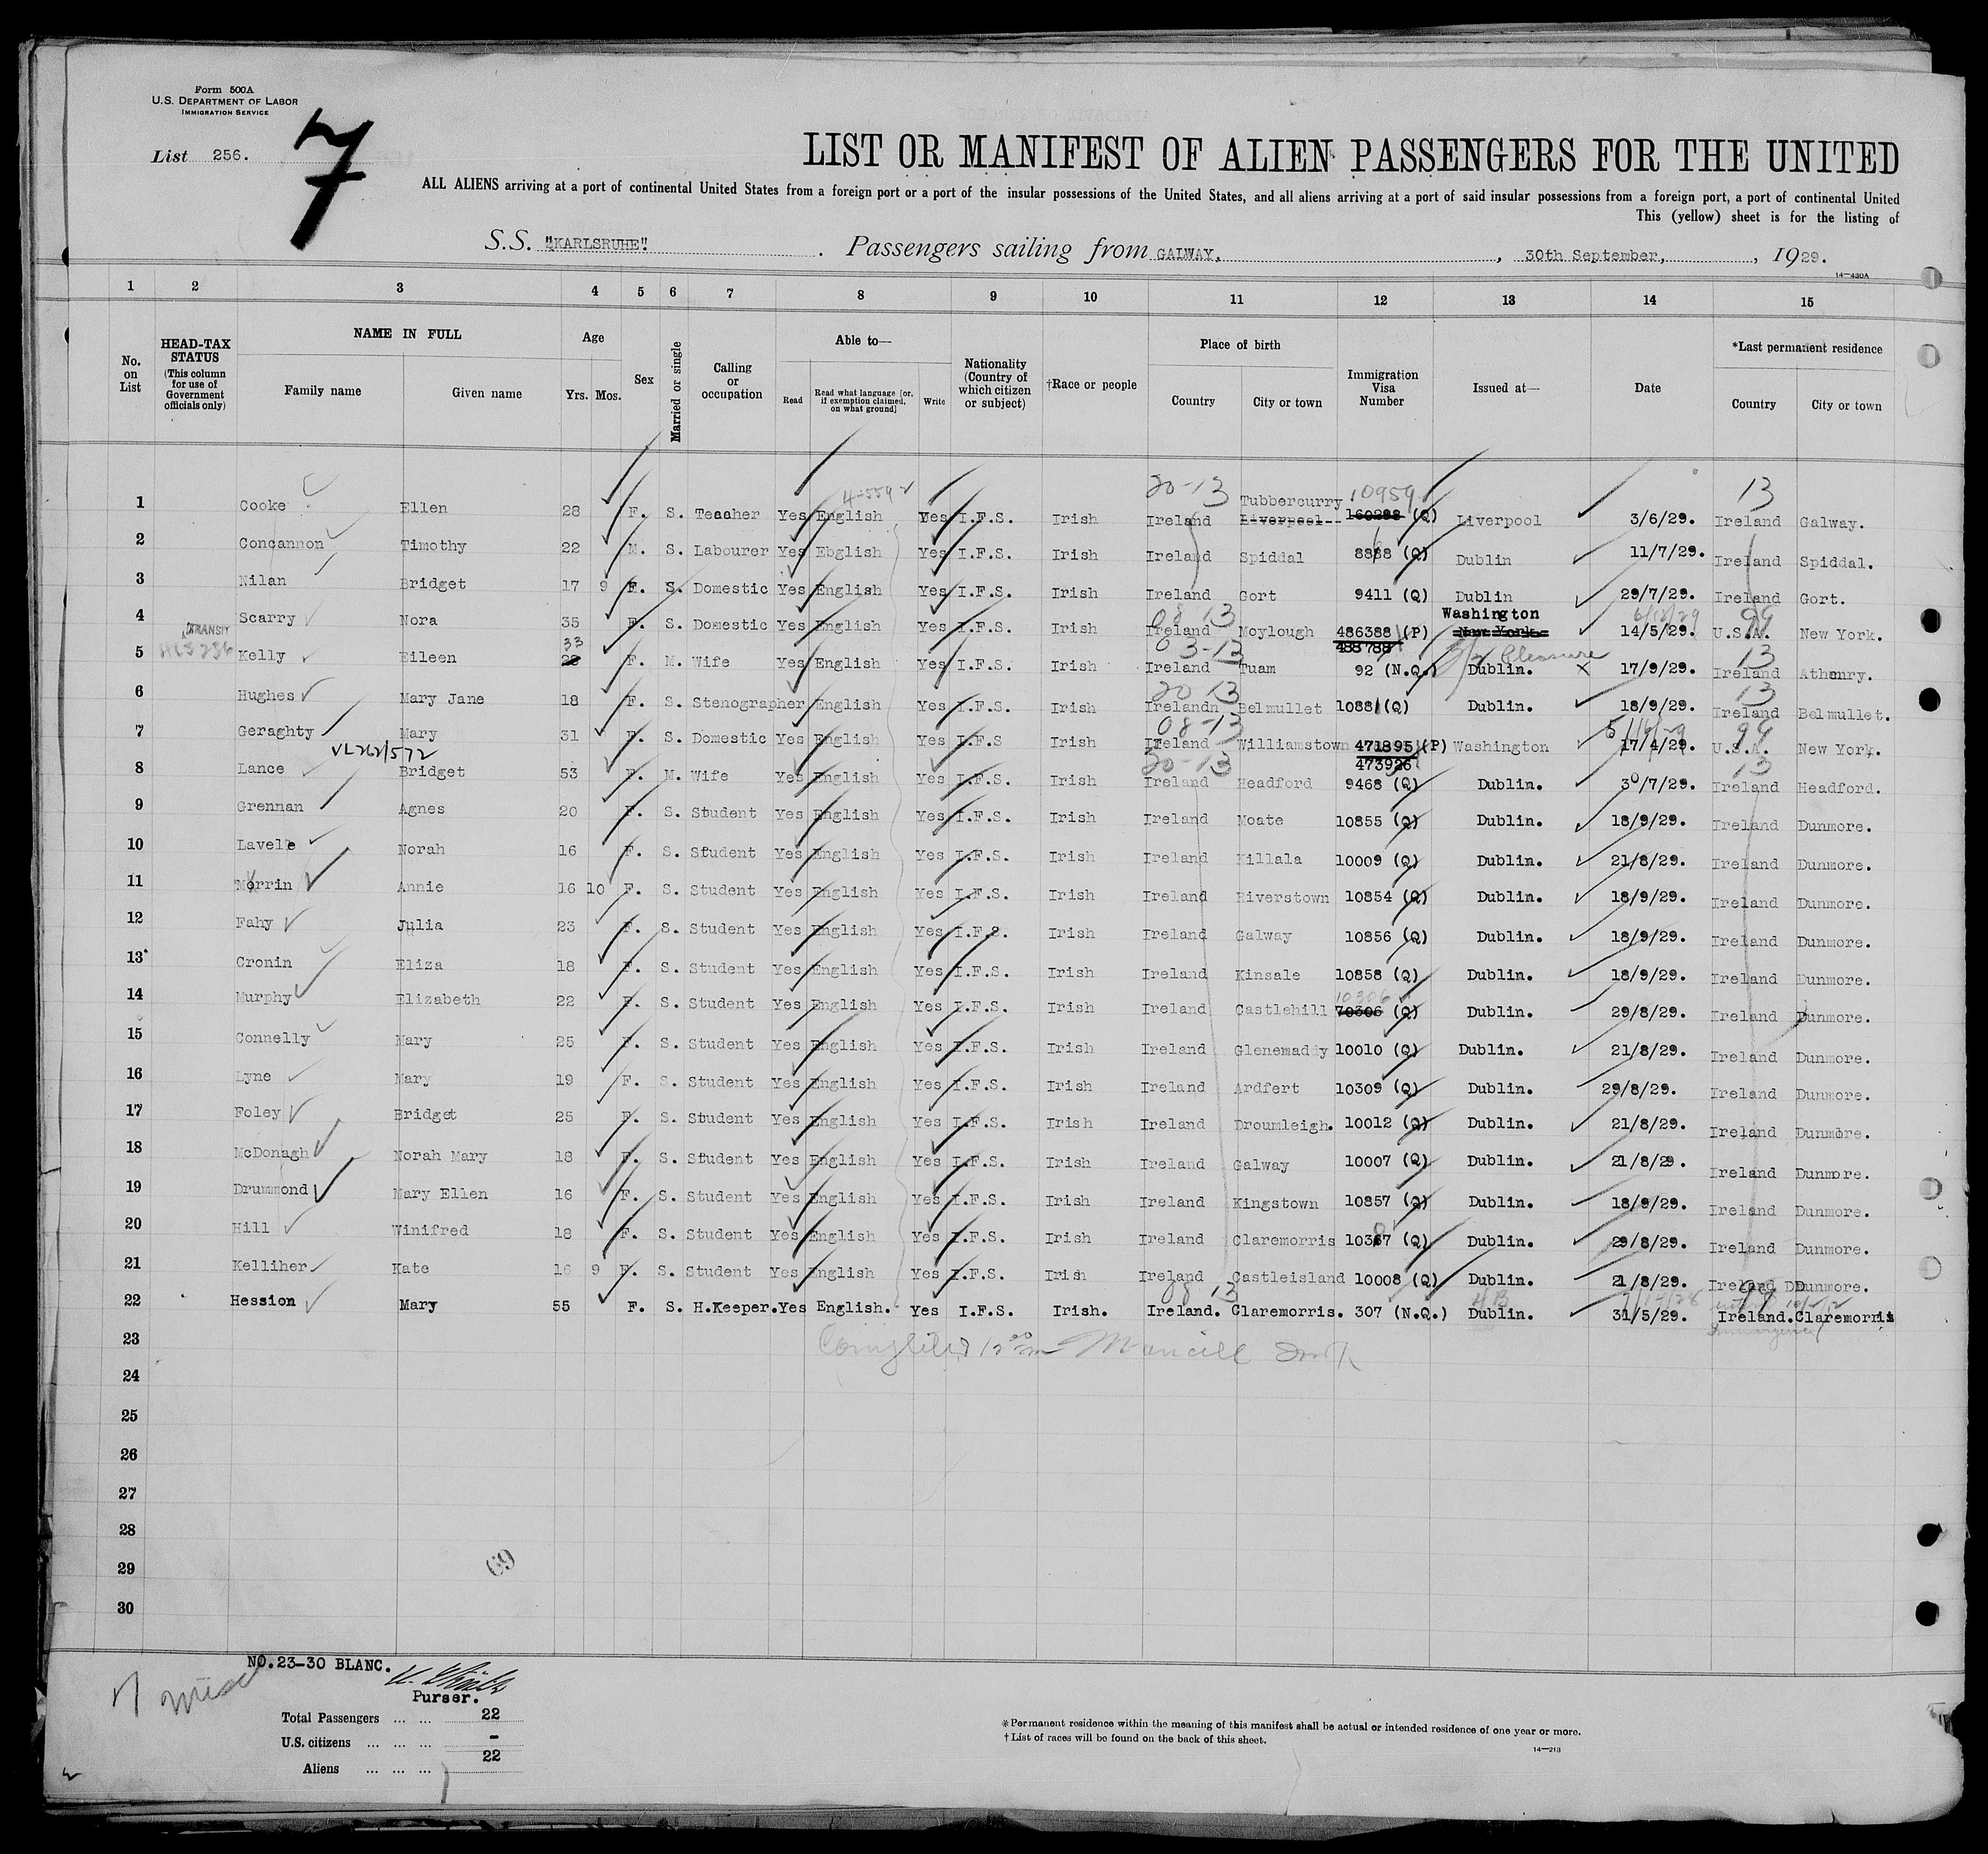 Form 500A
U.S. DEPARTMENT OF LABOR
IMMIGRATION SERVICE
List 256.
7
LIST OR MANIFEST OF ALIEN PASSENGERS FOR THE UNITED
ALL ALIENS arriving at a port of continental United States from a foreign port or a port of the insular possessions of the United States, and all aliens arriving at a port of said insular possessions from a foreign port, a port of continental United
This (yellow) sheet is for the listing of
S.S. "KARLSRUHE". Passengers sailing from GALWAY, 30th September, 1929.
14—430A
1 2 3 4 5 6 7 8 9 10 11 12 13 14 15
No. on List
HEAD-TAX STATUS (This column for use of Government officials only)
NAME IN FULL
Family name Given name
Age
Yrs. Mos.
Sex
Married or single
Calling or occupation
Able to—
Read Read what language [or, if exemption claimed, on what ground] Write
Nationality (Country of which citizen or subject)
†Race or people
Place of birth
Country City or town
Immigration Visa Number
Issued at—
Date
*Last permanent residence
Country City or town
4-559 20-13 Tubbercurry 10959 13
1 Cooke Ellen 28 F. S. Teacher Yes English Yes I.F.S. Irish Ireland Liverpool 160298 (Q) Liverpool 3/6/29. Ireland Galway.
2 Concannon Timothy 22 M. S. Labourer Yes Ebglish Yes I.F.S. Irish Ireland Spiddal 8888 (Q) Dublin 11/7/29. Ireland Spiddal.
3 Nilan Bridget 17 9 F. S. Domestic Yes English Yes I.F.S. Irish Ireland Gort 9411 (Q) Dublin 29/7/29. Ireland Gort.
08-13 Washington 99
4 Scarry Nora 35 F. S. Domestic Yes English Yes I.F.S. Irish Ireland Moylough 486388 (P) New York 14/5/29. U.S.A. New York.
TRANSIT 33 03-13 488788 Pleasure 13
5 Kelly Eileen 28 F. M. Wife Yes English Yes I.F.S. Irish Ireland Tuam 92 (N.Q.) Dublin. 17/9/29. Ireland Athenry.
20 13 13
6 Hughes Mary Jane 18 F. S. Stenographer English Yes I.F.S. Irish Irelandn Belmullet 10881 (Q) Dublin. 18/9/29. Ireland Belmullet.
08-13 99
7 Geraghty Mary 31 F. S. Domestic Yes English Yes I.F.S Irish Ireland Williamstown 471895 (P) Washington 17/4/29. U.S.A. New York.
VL262/572 20-13 473926 13
8 Lance Bridget 53 F. M. Wife Yes English Yes I.F.S. Irish Ireland Headford 9468 (Q) Dublin. 30/7/29. Ireland Headford.
9 Grennan Agnes 20 F. S. Student Yes English Yes I.F.S. Irish Ireland Moate 10855 (Q) Dublin. 18/9/29. Ireland Dunmore.
10 Lavelle Norah 16 F. S. Student Yes English Yes I.F.S. Irish Ireland Killala 10009 (Q) Dublin. 21/8/29. Ireland Dunmore.
11 Morrin Annie 16 10 F. S. Student Yes English Yes I.F.S. Irish Ireland Riverstown 10854 (Q) Dublin. 18/9/29. Ireland Dunmore.
12 Fahy Julia 23 F. S. Student Yes English Yes I.F.S. Irish Ireland Galway 10856 (Q) Dublin. 18/9/29. Ireland Dunmore.
13 Cronin Eliza 18 F. S. Student Yes English Yes I.F.S. Irish Ireland Kinsale 10858 (Q) Dublin. 18/9/29. Ireland Dunmore.
10306
14 Murphy Elizabeth 22 F. S. Student Yes English Yes I.F.S. Irish Ireland Castlehill 70306 (Q) Dublin. 29/8/29. Ireland Dunmore.
15 Connelly Mary 25 F. S. Student Yes English Yes I.F.S. Irish Ireland Glenemaddy 10010 (Q) Dublin. 21/8/29. Ireland Dunmore.
16 Lyne Mary 19 F. S. Student Yes English Yes I.F.S. Irish Ireland Ardfert 10309 (Q) Dublin. 29/8/29. Ireland Dunmore.
17 Foley Bridget 25 F. S. Student Yes English Yes I.F.S. Irish Ireland Droumleigh. 10012 (Q) Dublin. 21/8/29. Ireland Dunmore.
18 McDonagh Norah Mary 18 F. S. Student Yes English Yes I.F.S. Irish Ireland Galway 10007 (Q) Dublin. 21/8/29. Ireland Dunmore.
19 Drummond Mary Ellen 16 F. S. Student Yes English Yes I.F.S. Irish Ireland Kingstown 10857 (Q) Dublin. 18/9/29. Ireland Dunmore.
20 Hill Winifred 18 F. S. Student Yes English Yes I.F.S. Irish Ireland Claremorris 10367 (Q) Dublin. 29/8/29. Ireland Dunmore.
21 Kelliher Kate 16 9 F. S. Student Yes English Yes I.F.S. Irish Ireland Castleisland 10008 (Q) Dublin. 21/8/29. Ireland Dunmore.
08 13 4B 98
22 Hession Mary 55 F. S. H.Keeper. Yes English. Yes I.F.S. Irish. Ireland. Claremorris. 307 (N.Q.) Dublin. 31/5/29. Ireland. Claremorris
23
24
25
26
27
28
29
30
(69)
NO.23-30 BLANC.
Purser.
Total Passengers ... ... 22
U.S. citizens ... ... ... -
Aliens ... ... ... 22
*Permanent residence within the meaning of this manifest shall be actual or intended residence of one year or more.
†List of races will be found on the back of this sheet.
14—213